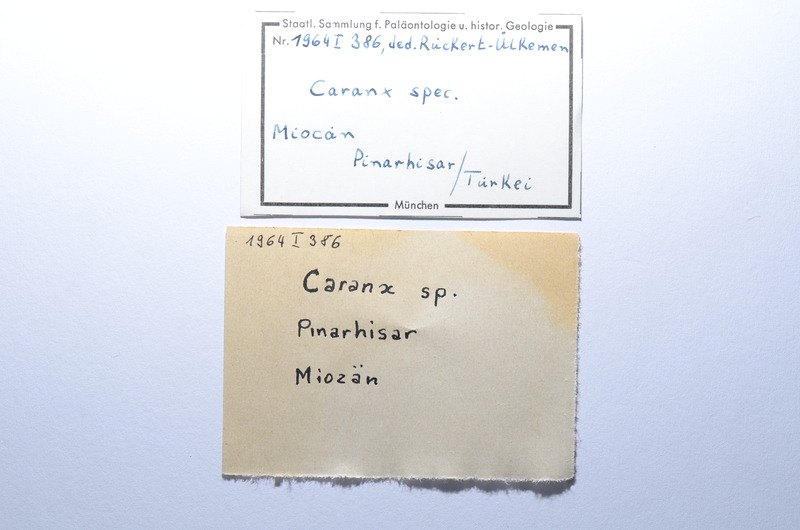 Staatl. Sammlung f. Paläontologie u. histor. Geologie
Nr. 1964 I 386, ded. Rückert-Ülkemen
Caranx spec.
Miocän
Pinarhisar/Türkei
München
1964 I 386
Caranx sp.
Pınarhisar
Miozän